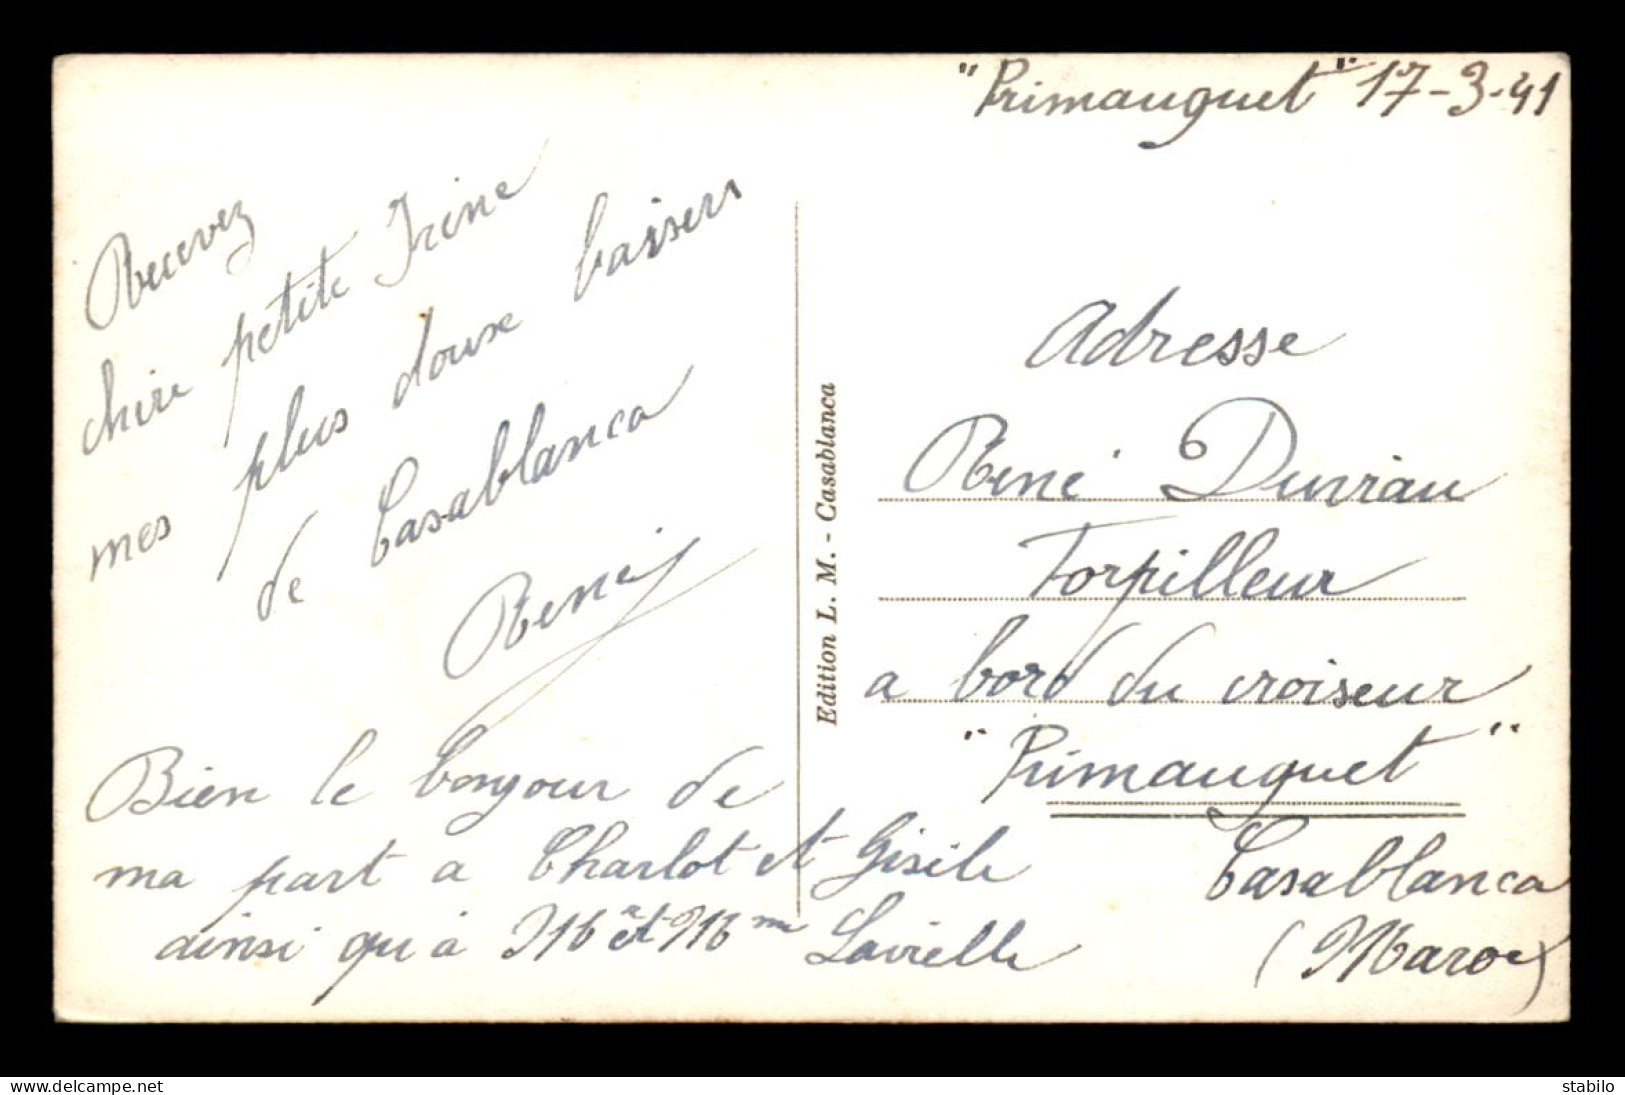 "Primauguet" 17-3-41
Recevez
chère petite Irène
mes plus douse baisers
de Casablanca
René
Bien le bonjour de
ma part a Charlot et Gisèle
ainsi qu'à Mr et Mme Lavielle
Edition L. M. - Casablanca
Adresse
René Duviau
Torpilleur
a bord du croiseur
"Primauguet"
Casablanca
(Maroc)
www.delcampe.net
stabilo